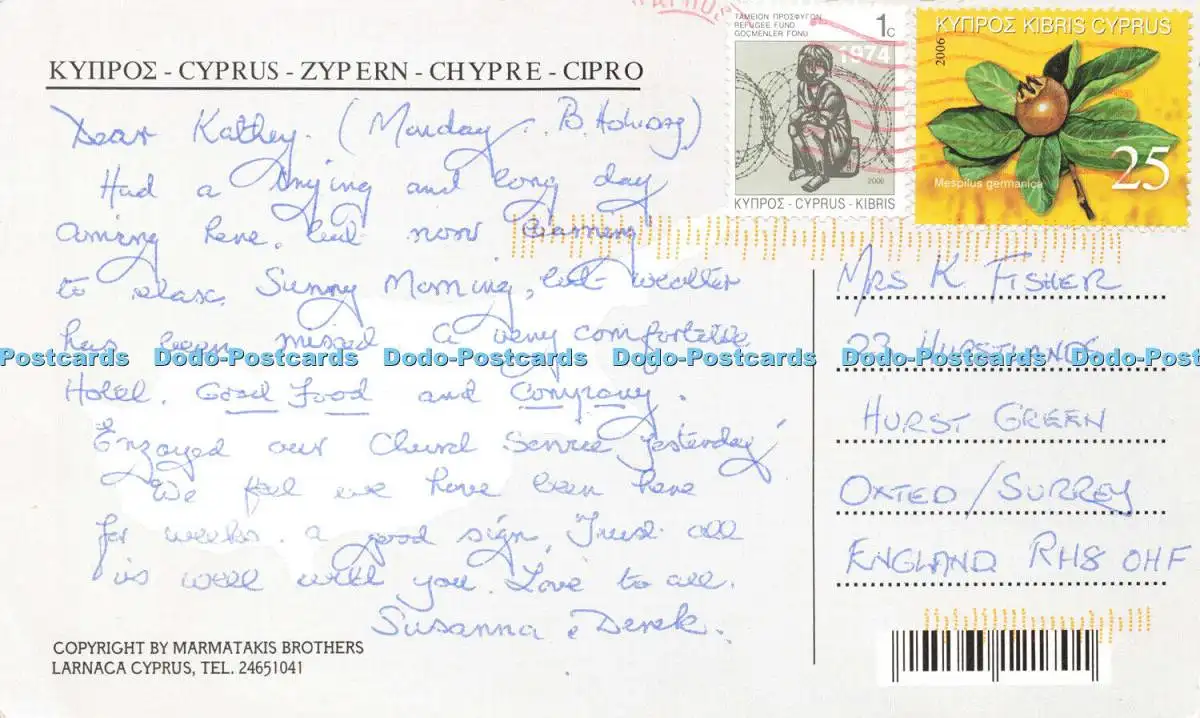 ΤΑΜΕΙΟΝ ΠΡΟΣΦΥΓΩΝ
REFUGEE FUND
GÖÇMENLER FONU
1c
1974
2006
ΚΥΠΡΟΣ - CYPRUS - KIBRIS
ΚΥΠΡΟΣ KIBRIS CYPRUS
2006
Mespilus germanica
25
ΚΥΠΡΟΣ - CYPRUS - ZYPERN - CHYPRE - CIPRO
Dear Kathey. (Monday. B. Holiday)
Had a trying and long day
coming here, but now
to relax. Sunny Morning, but weather
has been mixed. A very comfortable
Hotel. Good Food and Company.
Enjoyed our Church Service yesterday
We feel we have been here
for weeks. a good sign. Trust all
is well with you. Love to all.
Susanna & Derek.
MRS K FISHER
23 HURSTLANDS
HURST GREEN
OXTED / SURREY
ENGLAND RH8 0HF
Dodo-Postcards Dodo-Postcards Dodo-Postcards Dodo-Postcards Dodo-Postcards Dodo-Post
COPYRIGHT BY MARMATAKIS BROTHERS
LARNACA CYPRUS, TEL. 24651041